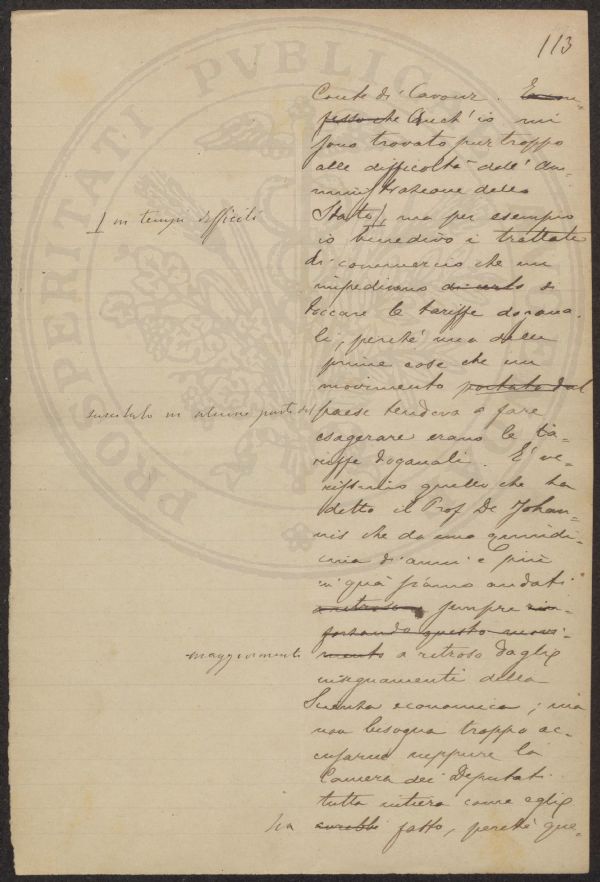 113
Conte di Cavour. Io con-
fesso che Anch'io mi
sono trovato pur troppo
alle difficoltà dell'Am-
ministrazione dello
Stato, ma per esempio
in tempi difficili
io benedivo i trattati
di commercio che mi
impedivano di toccare
le tariffe dogana-
li, perché una delle
prime cose che un
movimento portato dal
suscitato in alcune parti del
paese tendeva a fare
esagerare erano le ta-
riffe doganali. È ve-
rissimo quello che ha
detto il Prof. De Johan-
nis che da una quindi-
cina di anni e più
in quà siamo andati
a ritroso sempre rin-
forzando questo movi-
mento a ritroso dagli
maggiormente
insegnamenti della
Scienza economica; ma
non bisogna troppo ac-
cusarne neppure la
Camera dei Deputati
tutta intiera come egli
ha avrebbe fatto, perché que-
PROSPERITATI PVBLIC